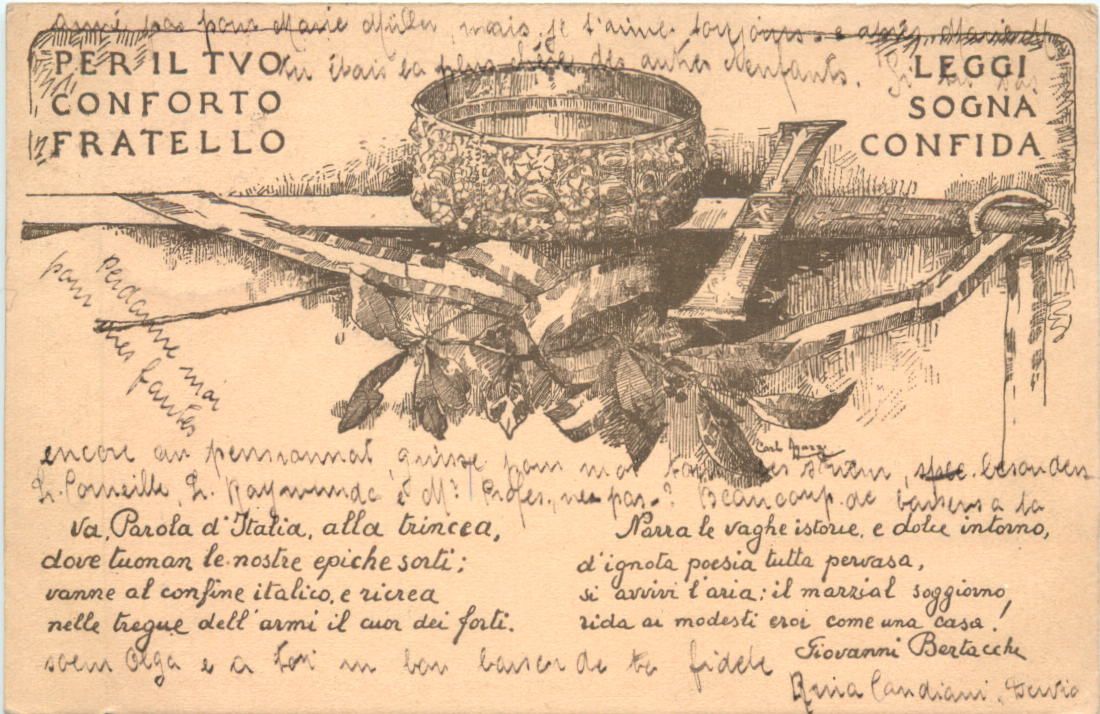 aimé pas pour Marie Müller, mais je t'aime toujours e après Marie M
tu étais la plus chère des autres enfants. Si tu vas
PER IL TVO
CONFORTO
FRATELLO
LEGGI
SOGNA
CONFIDA
perdonne moi
pour mes fautes
Carlo
encore au pensionnat pour moi
S. Corneille, S. Raymunde e Mr. Profes, nes pas? Beaucoup de baisers a ta
Va, Parola d'Italia, alla trincea,
dove tuonan le nostre epiche sorti;
vanne al confine italico, e ricrea
nelle tregue dell'armi il cuor dei forti.
Narra le vaghe istorie, e dolce intorno,
d'ignota poesia tutta pervasa,
si avvivi l'aria: il marzial soggiorno,
rida ai modesti eroi come una casa.
Giovanni Bertacchi
soeur Olga e a toi un bon baiser de ta fidele
Candiani, Dervio